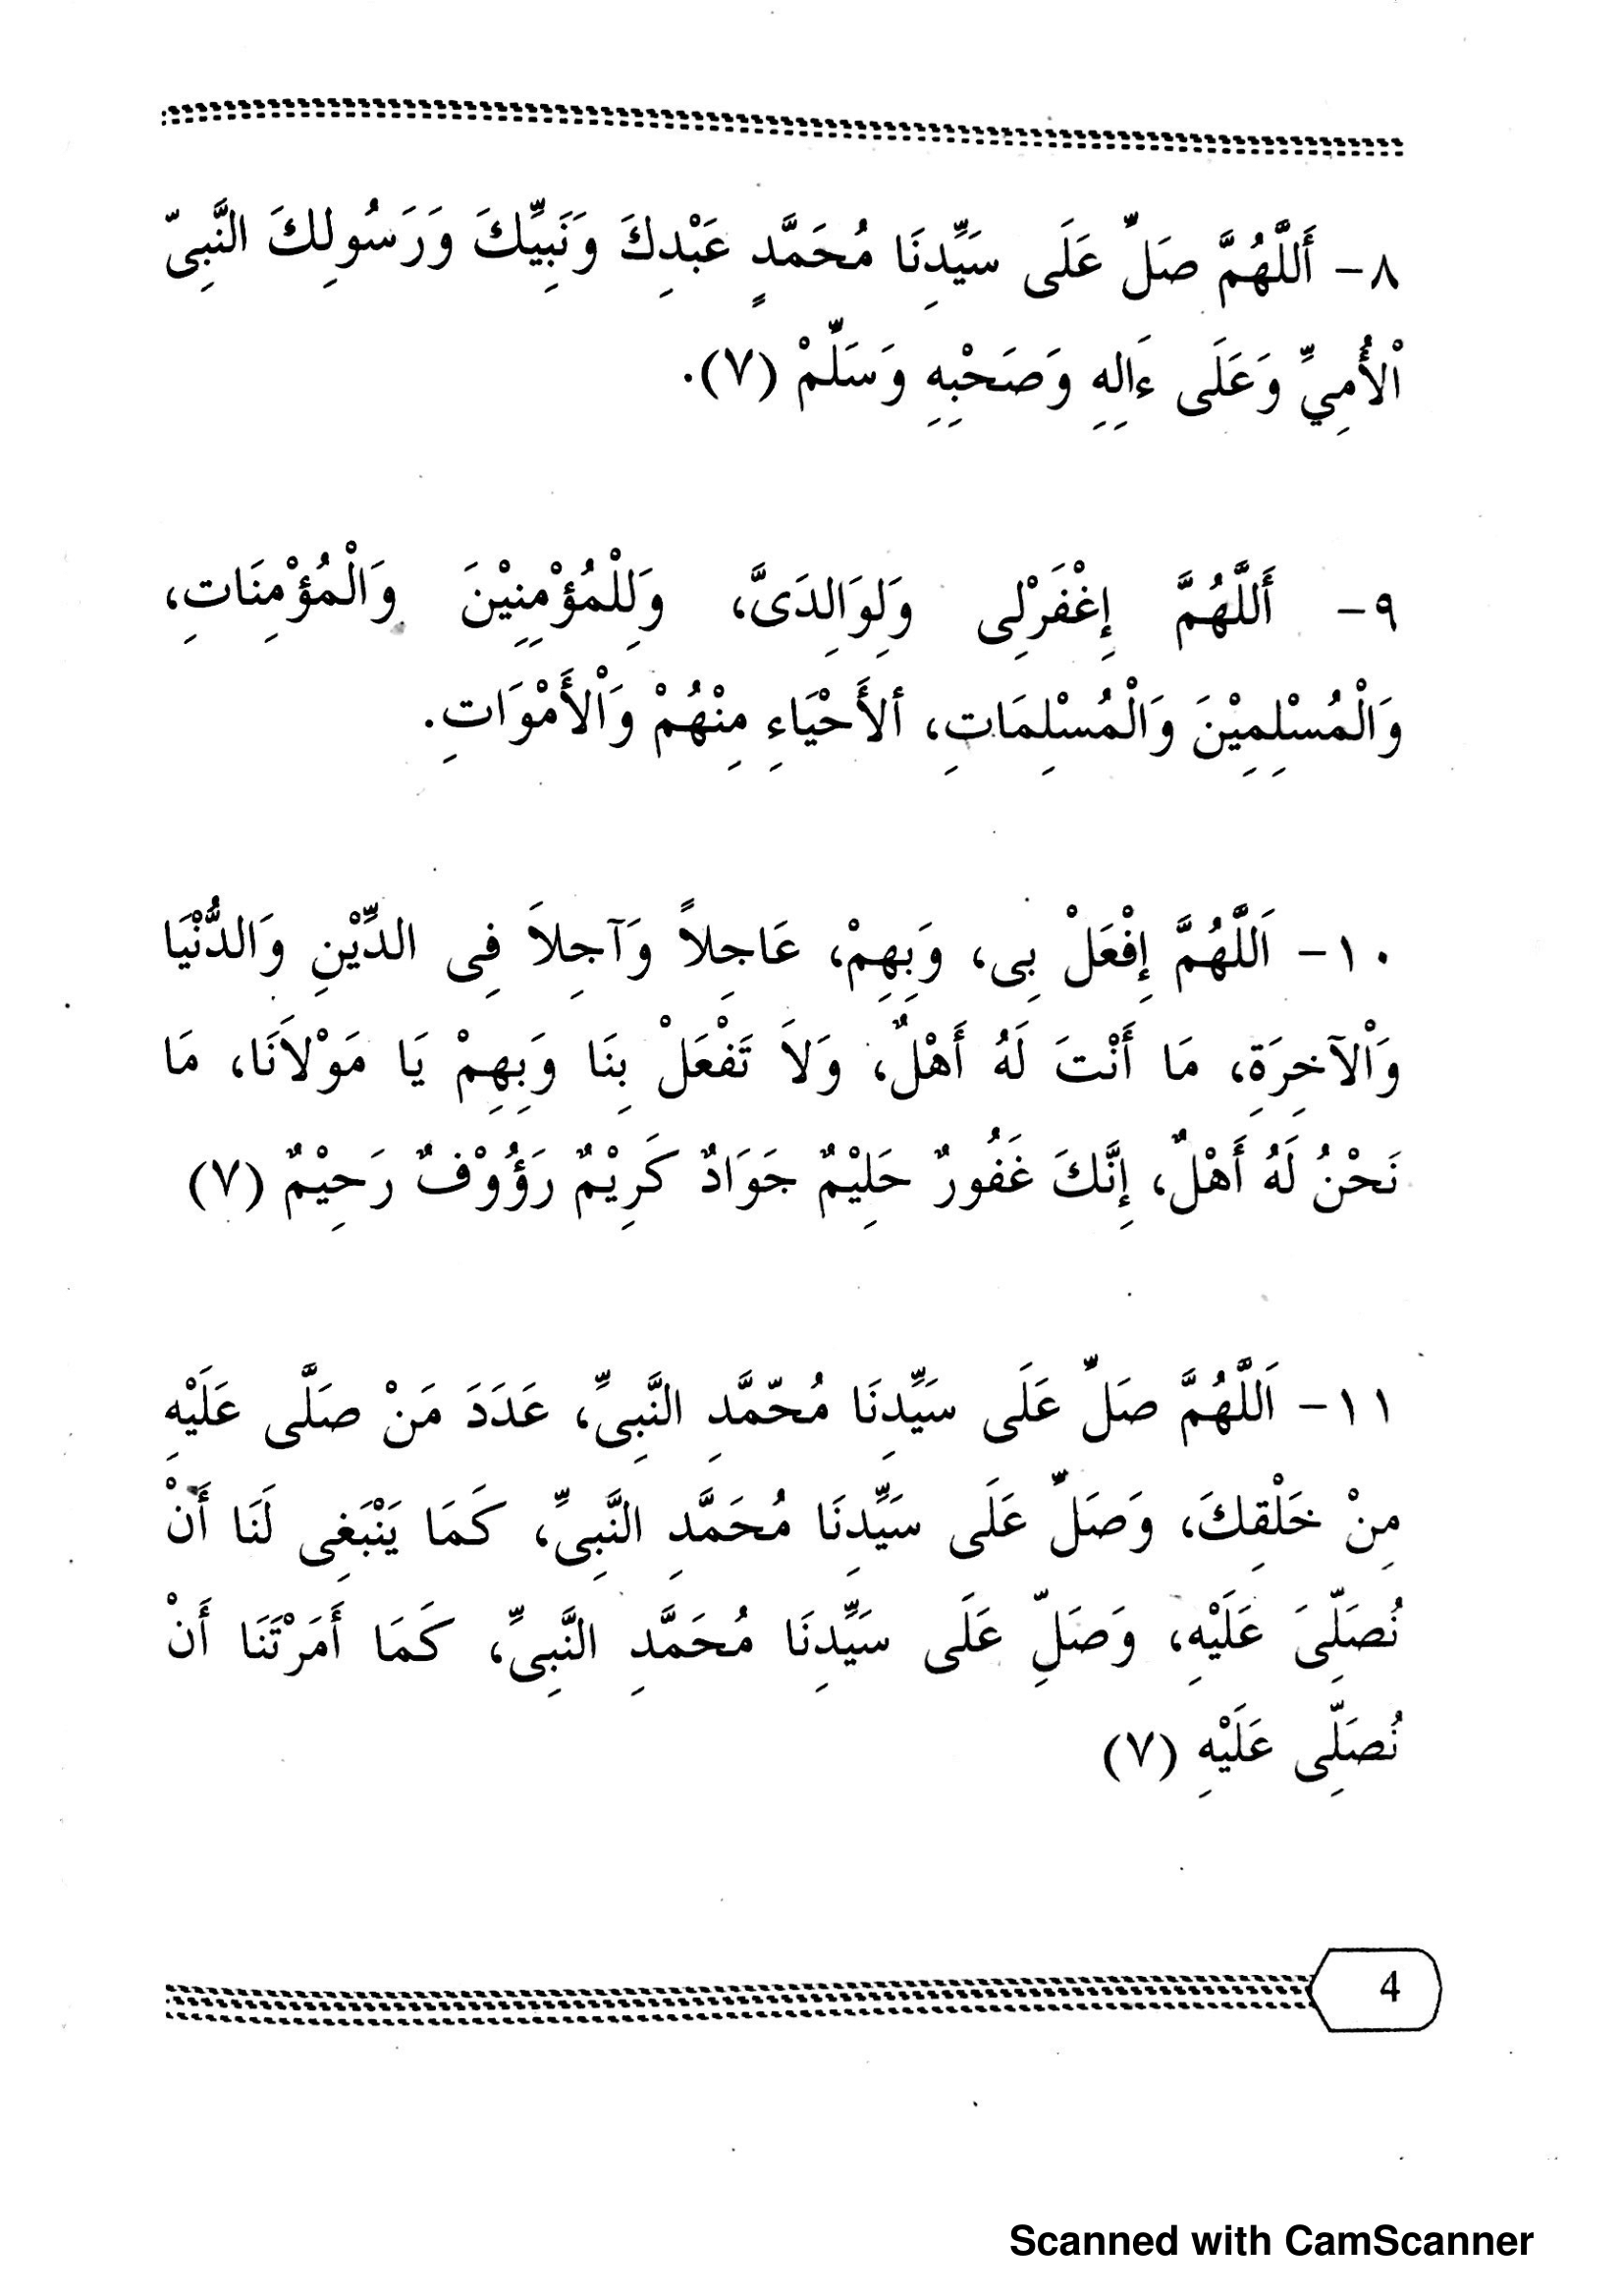 ٨- أَللَّهُمَّ صَلِّ عَلَى سَيِّدِنَا مُحَمَّدٍ عَبْدِكَ وَنَبِيِّكَ وَرَسُولِكَ النَّبِىّ
اْلأُمِيِّ وَعَلَى ءَالِهِ وَصَحْبِهِ وَسَلِّمْ (٧).
٩- أَللَّهُمَّ إِغْفَرْلِى وَلِوَالِدَىَّ، وَلِلْمُؤْمِنِيْنَ وَالْمُؤْمِنَاتِ،
وَالْمُسْلِمِيْنَ وَالْمُسْلِمَاتِ، ألأَحْيَاءِ مِنْهُمْ وَاْلأَمْوَاتِ.
١٠- اَللَّهُمَّ إِفْعَلْ بِى، وَبِهِمْ، عَاجِلاً وَآجِلاَ فِى الدِّيْنِ وَالدُّنْيَا
وَاْلآخِرَةِ، مَا أَنْتَ لَهُ أَهْلٌ، وَلاَ تَفْعَلْ بِنَا وَبِهِمْ يَا مَوْلاَنَا، مَا
نَحْنُ لَهُ أَهْلٌ، إِنَّكَ غَفُورٌ حَلِيْمٌ جَوَادٌ كَرِيْمٌ رَؤُوْفٌ رَحِيْمٌ (٧)
١١- اَللَّهُمَّ صَلِّ عَلَى سَيِّدِنَا مُحّمَّدِ النَّبِىِّ، عَدَدَ مَنْ صَلَّى عَلَيْهِ
مِنْ خَلْقِكَ، وَصَلِّ عَلَى سَيِّدِنَا مُحَمَّدِ النَّبِىِّ، كَمَا يَنْبَغِى لَنَا أَنْ
نُصَلِّىَ عَلَيْهِ، وَصَلِّ عَلَى سَيِّدِنَا مُحَمَّدِ النَّبِىِّ، كَمَا أَمَرْتَنَا أَنْ
نُصَلِّى عَلَيْهِ (٧)
4
Scanned with CamScanner